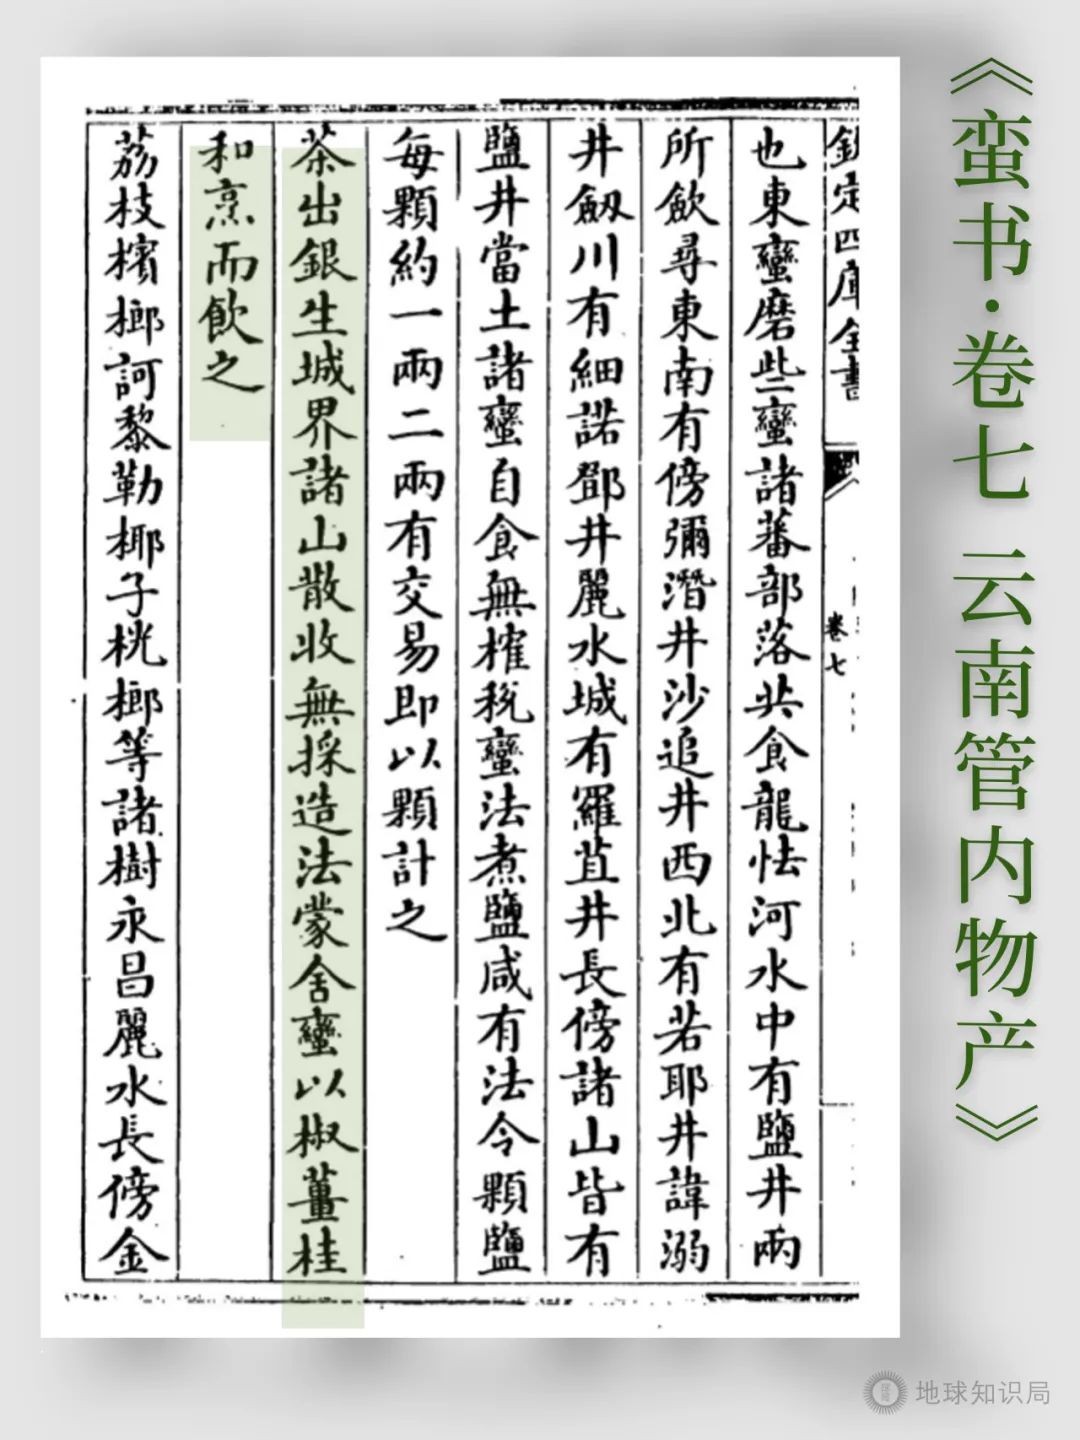 《蛮书·卷七 云南管内物产》
欽定四庫全書
卷七
也東蠻磨些蠻諸蕃部落共食龍怯河水中有鹽井兩
所歛尋東南有傍彌潛井沙追井西北有若耶井諱溺
井劔川有細諾鄧井麗水城有羅苴井長傍諸山皆有
鹽井當土諸蠻自食無榷税蠻法煮鹽咸有法令顆鹽
每顆約一兩二兩有交易即以顆計之
茶出銀生城界諸山散收無採造法蒙舍蠻以椒薑桂
和烹而飲之
荔枝檳榔訶黎勒椰子桄榔等諸樹永昌麗水長傍金
地球知识局